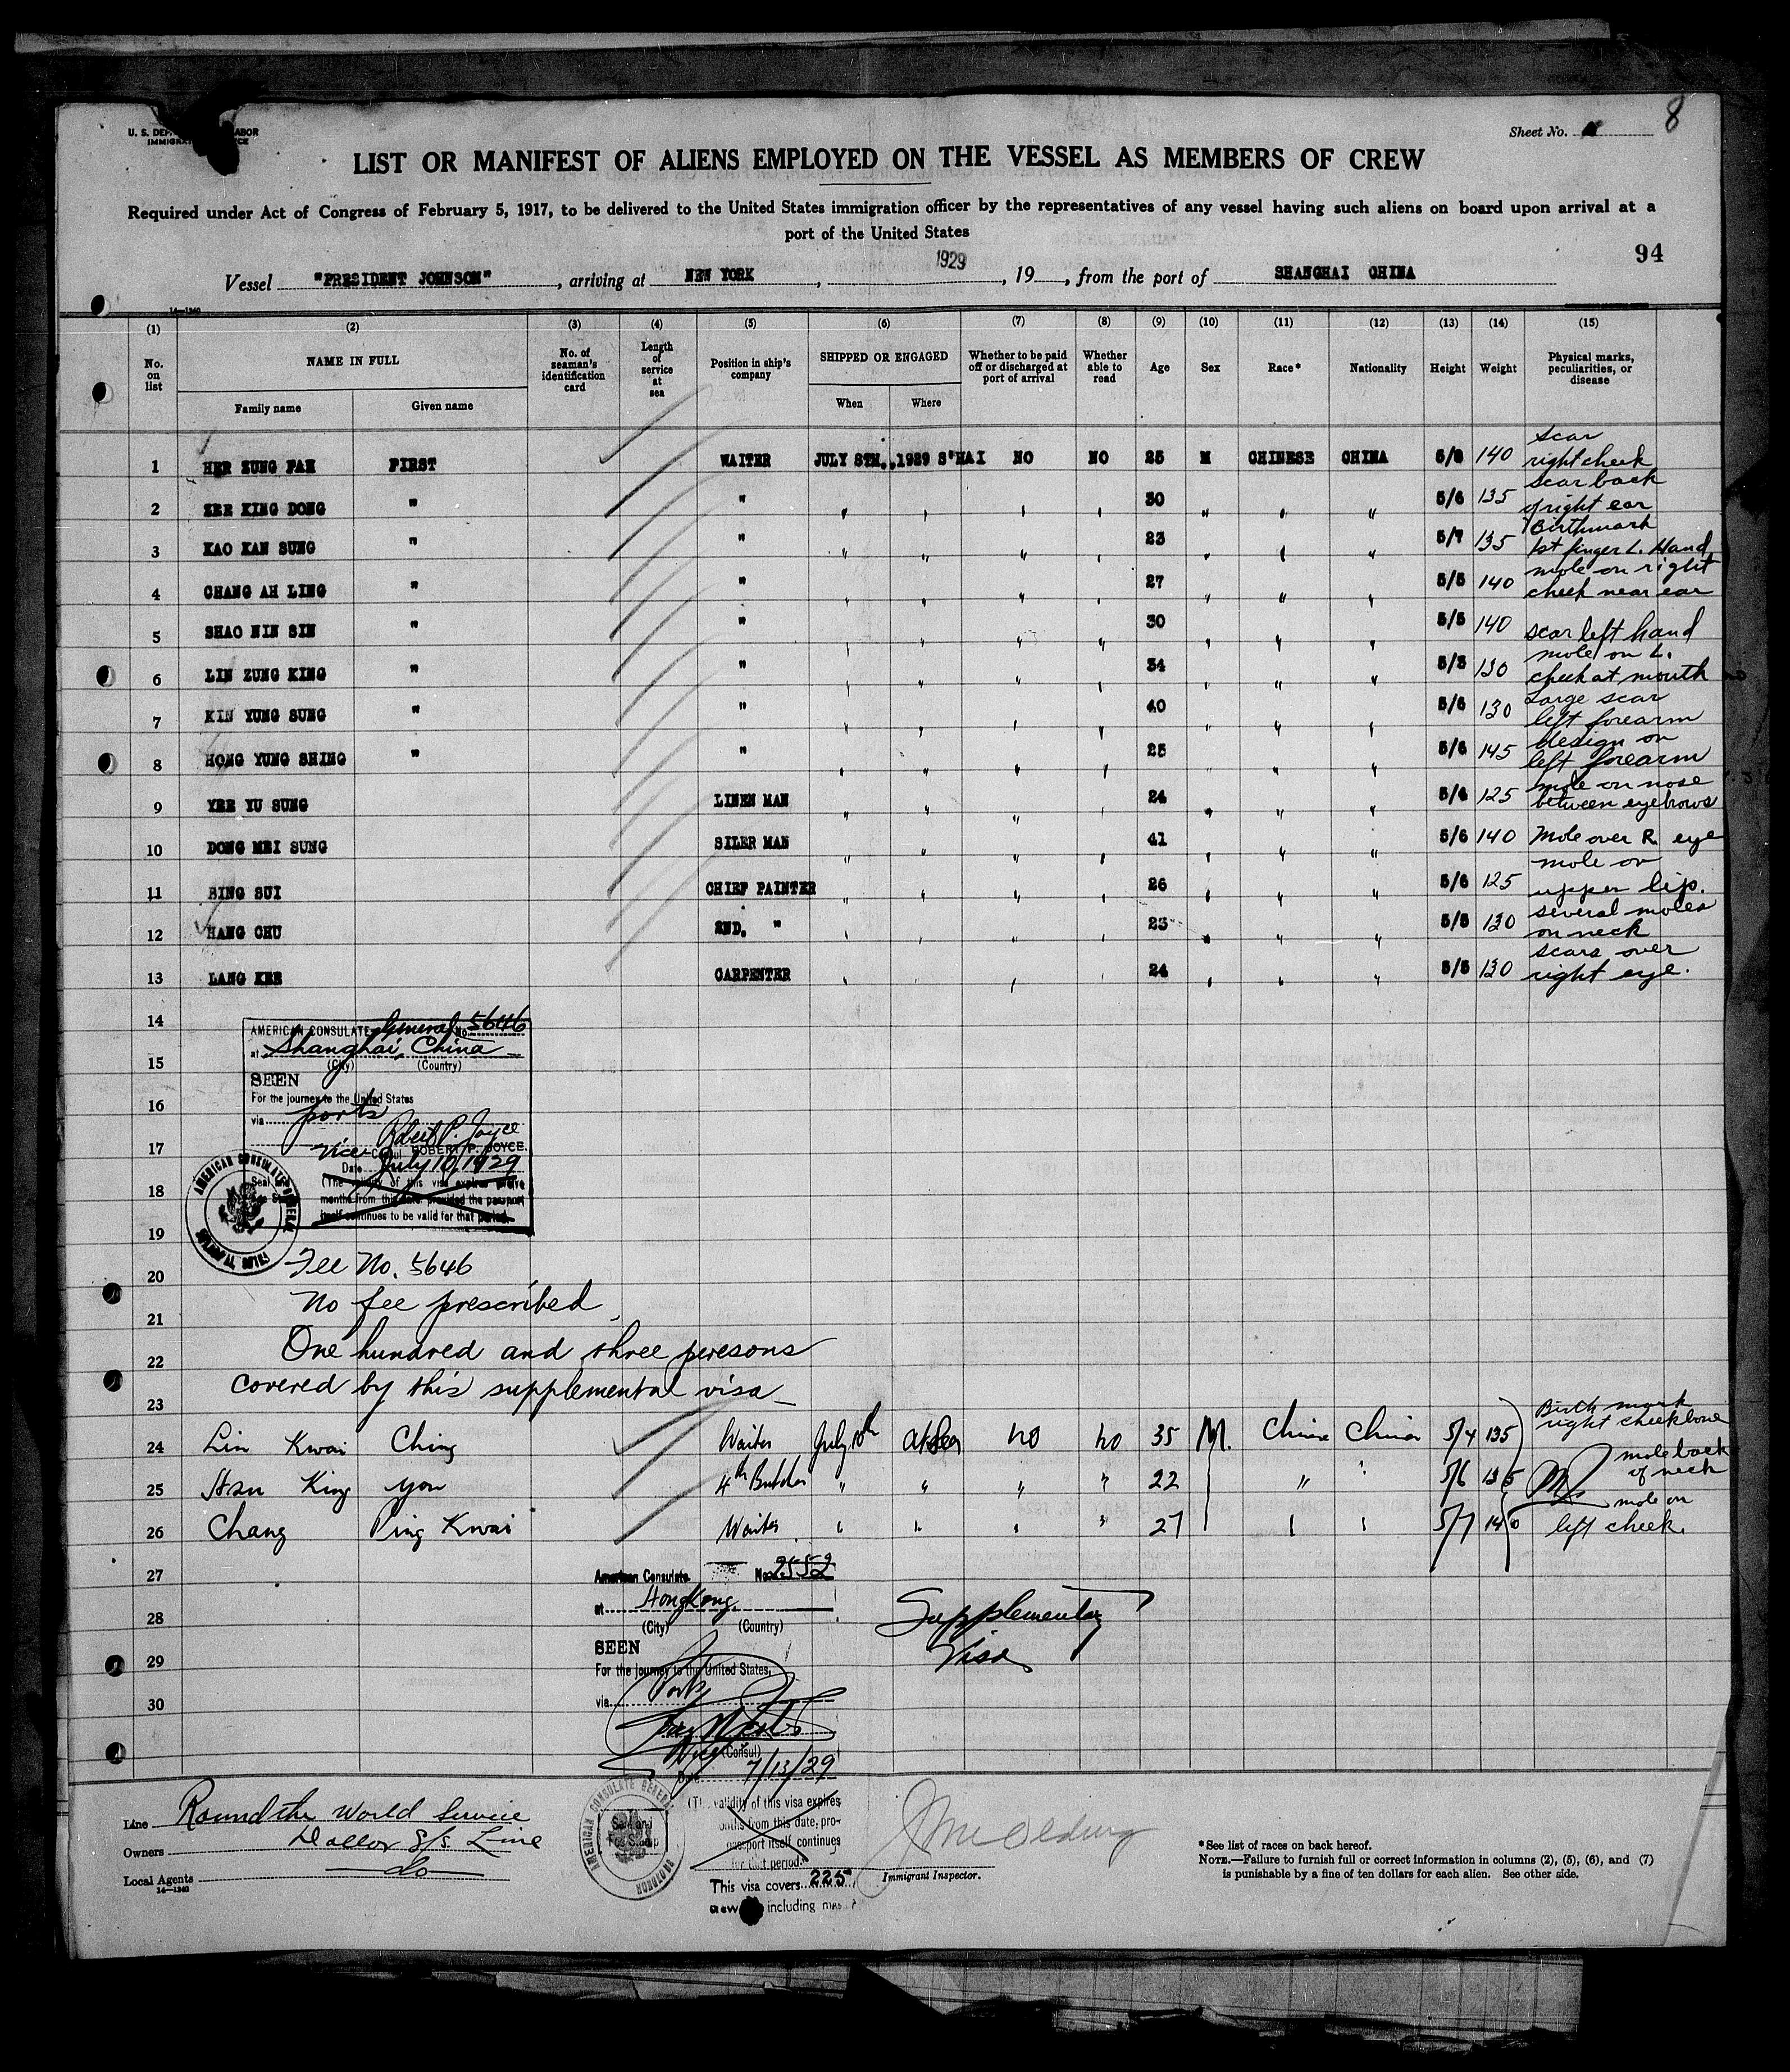 U. S. DEP ABOR
IMMIGRAT CE
Sheet No. 8
LIST OR MANIFEST OF ALIENS EMPLOYED ON THE VESSEL AS MEMBERS OF CREW
Required under Act of Congress of February 5, 1917, to be delivered to the United States immigration officer by the representatives of any vessel having such aliens on board upon arrival at a
port of the United States
94
Vessel "PRESIDENT JOHNSON", arriving at NEW YORK, 1929, 19, from the port of SHANGHAI CHINA
14—1240
(1) (2) (3) (4) (5) (6) (7) (8) (9) (10) (11) (12) (13) (14) (15)
No. on list NAME IN FULL No. of seaman's identification card Length of service at sea Position in ship's company SHIPPED OR ENGAGED Whether to be paid off or discharged at port of arrival Whether able to read Age Sex Race* Nationality Height Weight Physical marks, peculiarities, or disease
Family name Given name When Where
1 HER ZUNG FAH FIRST WAITER JULY 8TH., 1929 S'HAI NO NO 25 M CHINESE CHINA 5/8 140 scar right cheek
2 ZEE KING DONG " " " " " " 30 " " " 5/6 135 scar back of right ear
3 KAO KAN SUNG " " " " " " 23 " " " 5/7 135 Birthmark 1st finger L. Hand
4 CHANG AH LING " " " " " " 27 " " " 5/5 140 mole on right cheek near ear
5 SHAO NIN SIN " " " " " " 30 " " " 5/5 140 scar left hand
6 LIN ZUNG KING " " " " " " 34 " " " 5/3 130 mole on L. cheek at mouth
7 KIN YUNG SUNG " " " " " " 40 " " " 5/6 130 Large scar left forearm
8 HONG YUNG SHING " " " " " " 25 " " " 5/6 145 design on left forearm
9 YEE YU SUNG LINEN MAN " " " " 24 " " " 5/4 125 mole on nose between eyebrows
10 DONG MEI SUNG SILER MAN " " " " 41 " " " 5/6 140 Mole over R. eye
11 BING SUI CHIEF PAINTER " " " " 26 " " " 5/6 125 mole on upper lip.
12 HANG CHU 2ND. " " " " " 23 " " " 5/5 130 several moles on neck
13 LANG KEE CARPENTER " " " " 24 " " " 5/5 130 scars over right eye.
14
AMERICAN CONSULATE General No. 5646
at Shanghai, China
15
(City) (Country)
SEEN
For the journey to the United States
16
via ports
Robert P. Joyce
17
Vice Consul ROBERT P. JOYCE
Date July 10, 1929
(The validity of this visa expires twelve
18
months from this date provided the passport
itself continues to be valid for that period.
AMERICAN CONSULATE GENERAL
SHANGHAI, CHINA
19
Fee No. 5646
20
No fee prescribed
21
One hundred and three persons
22
covered by this supplemental visa
23
24 Lin Kwai Ching Waiter July 10th At Sea No No 35 M. China China 5/4 135 Birth mark right cheekbone
25 Hsu King You 4th Butcher " " " " 22 " " 5/6 135 mole back of neck
26 Chang Ping Kwai Waiter " " " " 27 " " 5/7 140 mole on left cheek.
27
American Consulate No. 2552
at Hongkong.
28
(City) (Country)
Supplementary
Visa
SEEN
29
For the journey to the United States,
via Ports
30
Vice (Consul)
Date 7/13/29
(The validity of this visa expires
months from this date, pro-
passport itself continues
for that period.
AMERICAN CONSULATE GENERAL
HONGKONG
Seal and
Fee Stamp
This visa covers 225
crew including master
Line Round the World Service
Owners Dollar S/S. Line
Local Agents do
14—1240
Immigrant Inspector.
*See list of races on back hereof.
NOTE.—Failure to furnish full or correct information in columns (2), (5), (6), and (7)
is punishable by a fine of ten dollars for each alien. See other side.